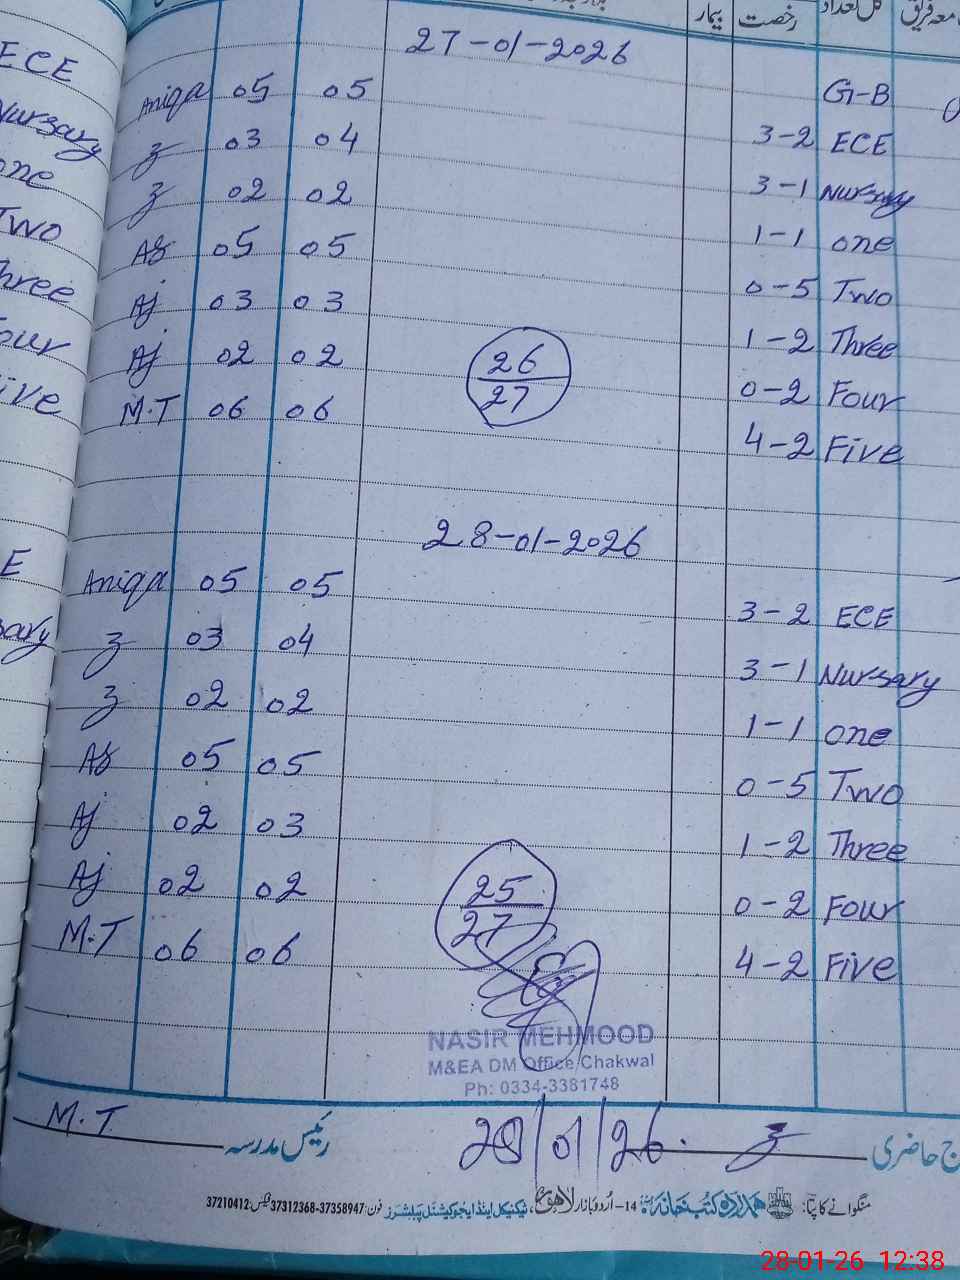 بیمار رخصت کل تعداد
27-01-2026
G-B
ECE Aniqa 05 05 3-2 ECE
Nursary 03 04 3-1 Nursary
one 02 02 1-1 one
Two 05 05 0-5 Two
Three Aj 03 03 1-2 Three
Four Aj 02 02 0-2 Four
Five M.T 06 06 4-2 Five
26
27
28-01-2026
E Aniqa 05 05 3-2 ECE
sary 03 04 3-1 Nursary
02 02 1-1 one
05 05 0-5 Two
Aj 02 03 1-2 Three
Aj 02 02 0-2 Four
M.T 06 06 4-2 Five
25
27
NASIR MEHMOOD
M&EA DM Office Chakwal
Ph: 0334-3381748
M.T رئیس مدرسہ 28/01/26 حاضری
منگوانے کا پتا: ہمدرد کتب خانہ 14-اُردو بازار لاہور، ٹیکنیکل اینڈ ایجوکیشنل پبلشرز فون: 37312368-37358947 فیکس: 37210412
28-01-26 12:38